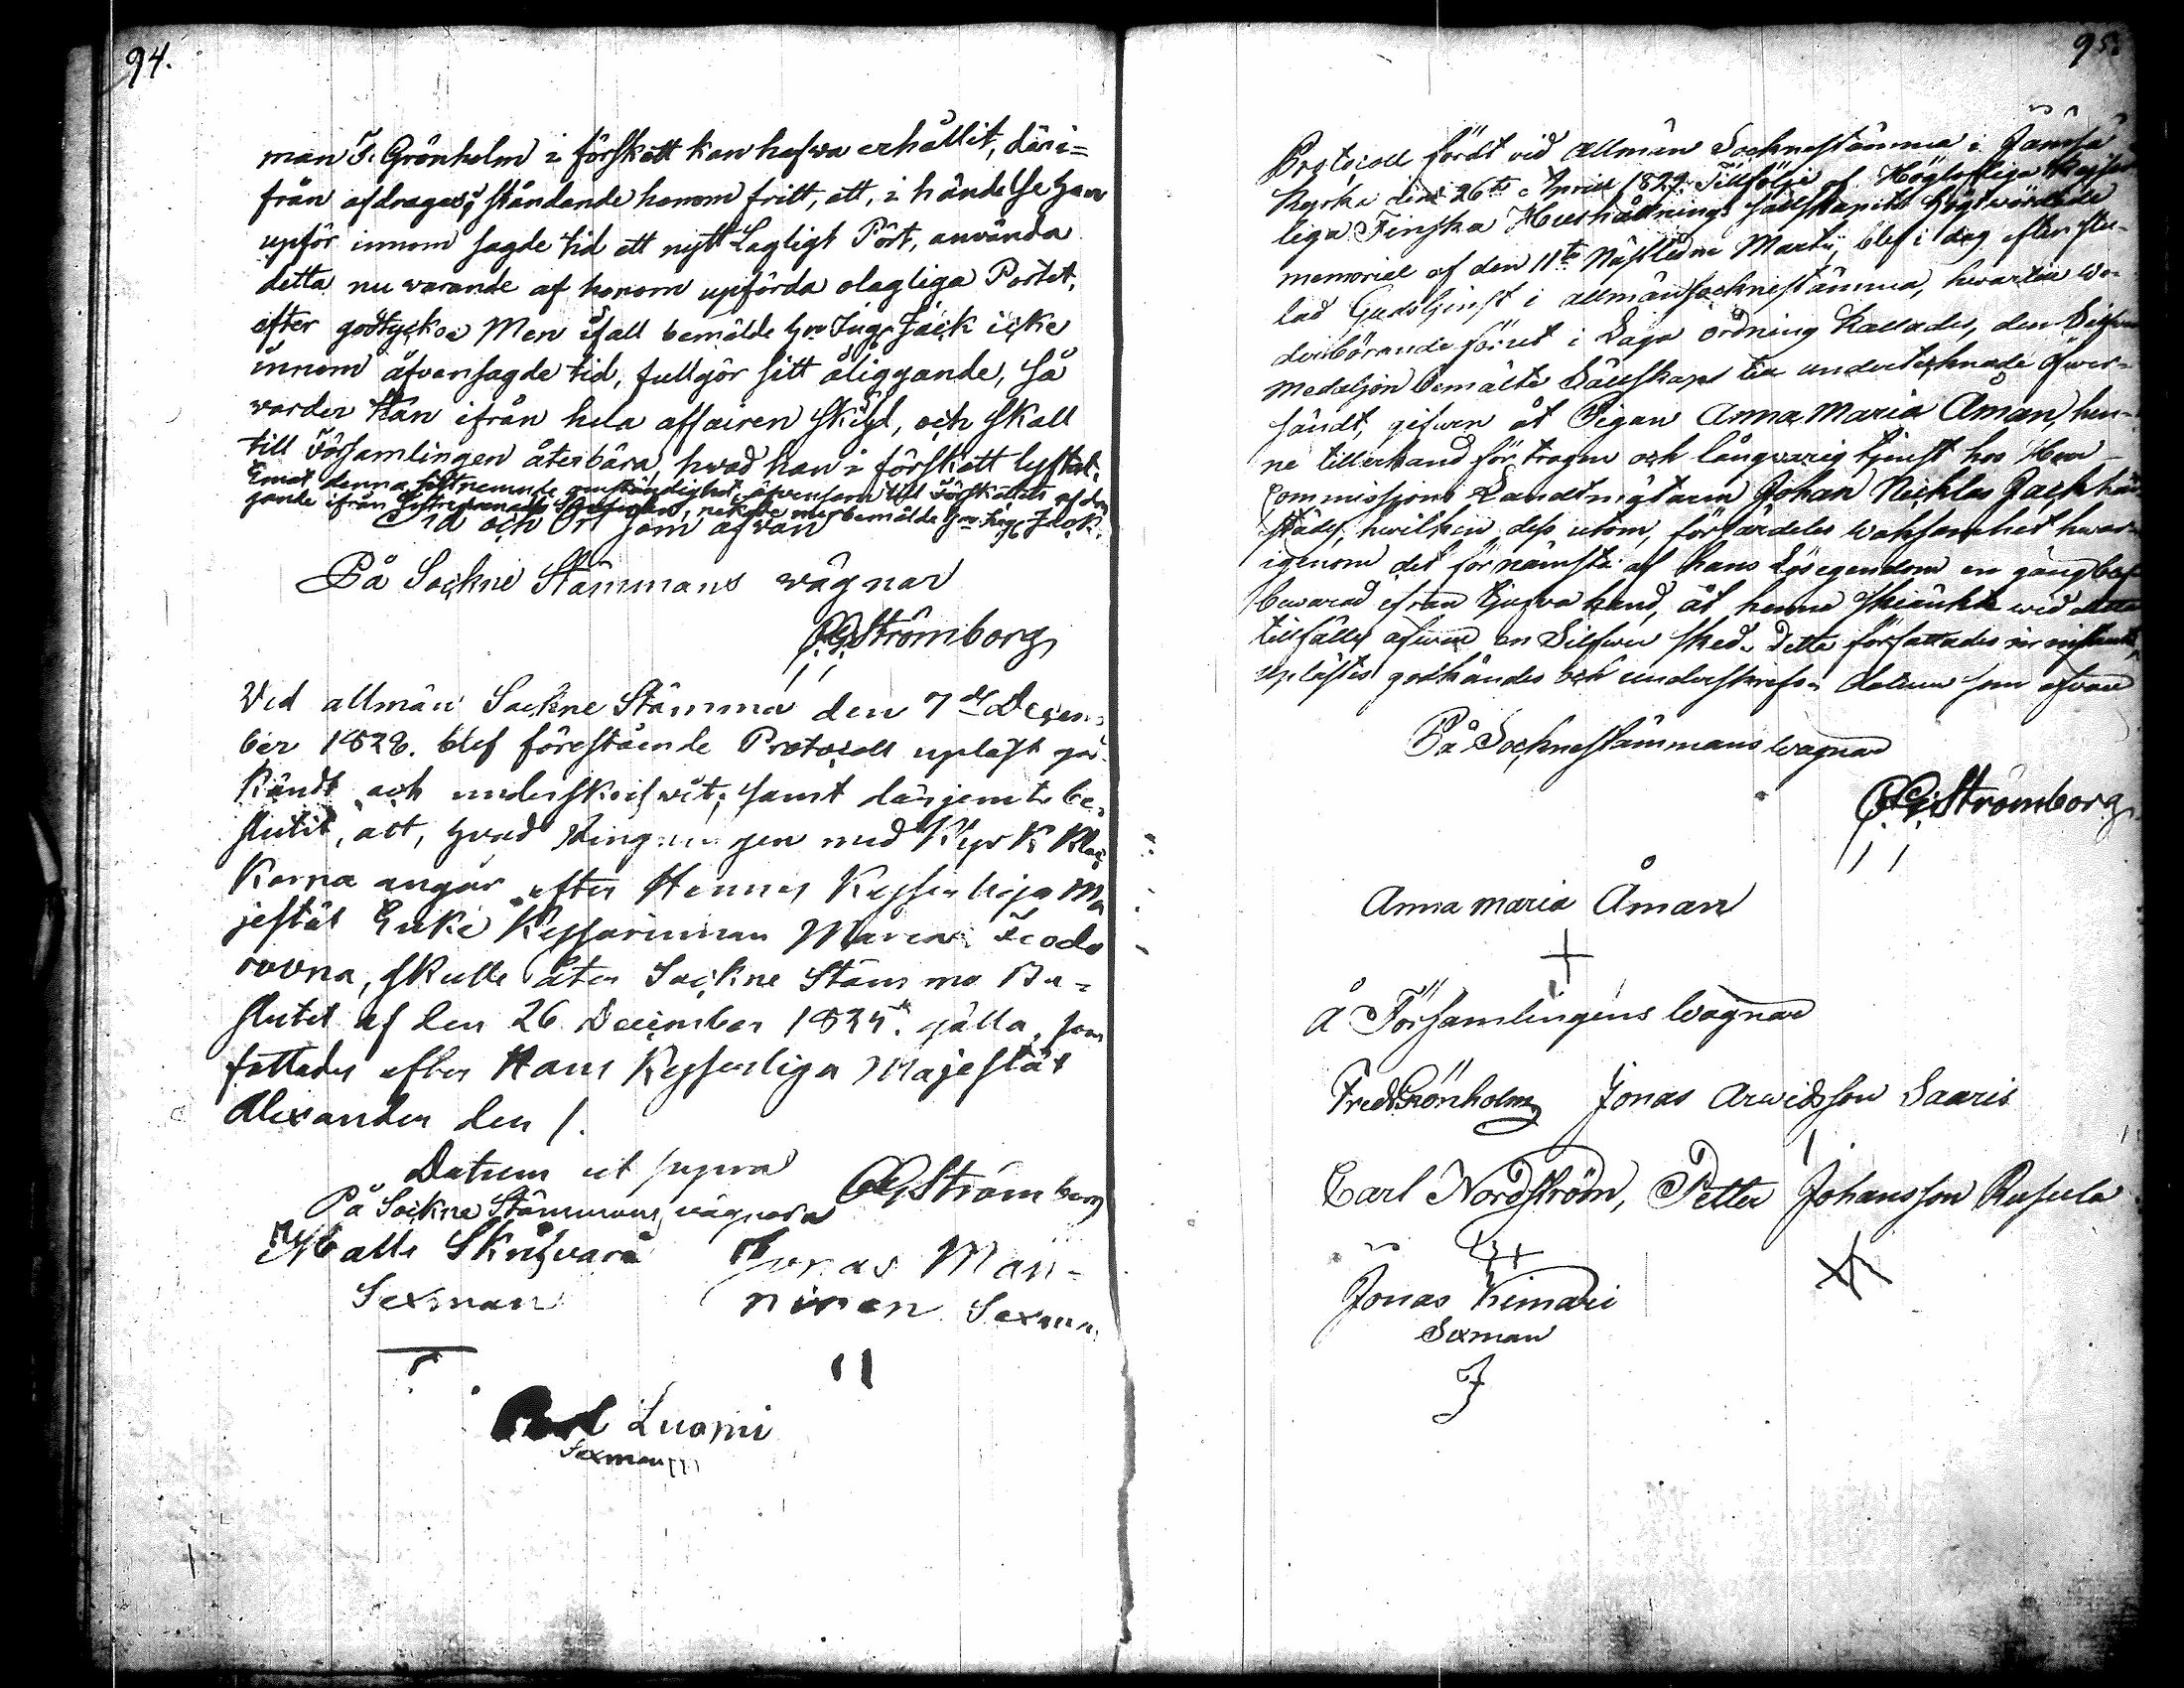 94.
man F. Grönholm i förskott kan hafva erhållit, däri=
från afdrages; ståndande honom fritt, att, i händelse han
upför innom sagde tid ett nytt Lagligt Pört, använda
detta nu warande af honom upförda olagliga Portet,
efter godtycke. Men ifall bemälde Hr Ing. Jack icke
innom åfvensagde tid, fullgör sitt åliggande, så
varder Han ifrån hela affairen skilld, och skall
till Församlingen återbära, hvad han i förskott lyftat.
Emot denna sistnemnde omständighet, äfvensom till Förskottets afdra
gande ifrån, nekade merbemälde Hr Ing. Jack.
Tid och Ort som ofvan
På Sockne Stämmans wägnar
CG Strömborg
Vid allmän Sockne Stämma den 7de Decem=
ber 1828. blef förestående Protocoll upläst god
kändt och underskrifvit; samt därjemte be=
slutit, att, hvad Ringningen med Kyrk Kloc
korna angår efter Hennes Kejserliga Ma
jestät Enke Kejsarinnan Maria Feodo
rovna, skulle åter Sockne Stämmo Be=
slutet af den 26 December 1825. gälla, som
fattades efter Hans Kejserliga Majestät
Alexander den 1.
Datum ut supra
På Sockne Stämmans vägnara CG Strömborg
Matts
Sexman
Jonas Män=
ninen Sexman
Luomi
Sexman
95.
Protocoll fördt vid Allmän Sochnestämma i Jämsä
Kyrka den 26te April 1829. Tillfölje af Höglofliga Kejser
liga Finska Hushållnings Sällskapets högtvördade
memorial af den 11te Nästledne Martii, blef i dag efter slu=
tad Gudstjenst i allmän sochnestämma, hvartill we=
derbörande förut i Laga ordning kallades, den Silfver
Medaljon bemälte Sällskapet till undertecknade öfver=
sändt, gifven åt Pigan Anna Maria Åman, hen=
ne tillerkänd för trogen och långvarig tjenst hos Herr
Commissions Landtmätaren Johan Nicklas Jack här
städes, hvilken dess utom, för särdeles waksamhet hvar=
igenom det förnämsta af hans Lösegendom en gång blef
bevarad ifrån tjufva hand, åt henne skänkte wid detta
tillfälle äfven en Silfver sked. Detta författades
uplästes godkändes och underskrefs. Datum som ofvan
På Sochnestämmans wägnar
CG Strömborg
Anna Maria Åman
+
å Församlingens Wägnar
Fred Grönholm Jonas Arwidsson Saaris
Carl Nordström, Petter Johansson Rusula
Jonas Himari
Sexman